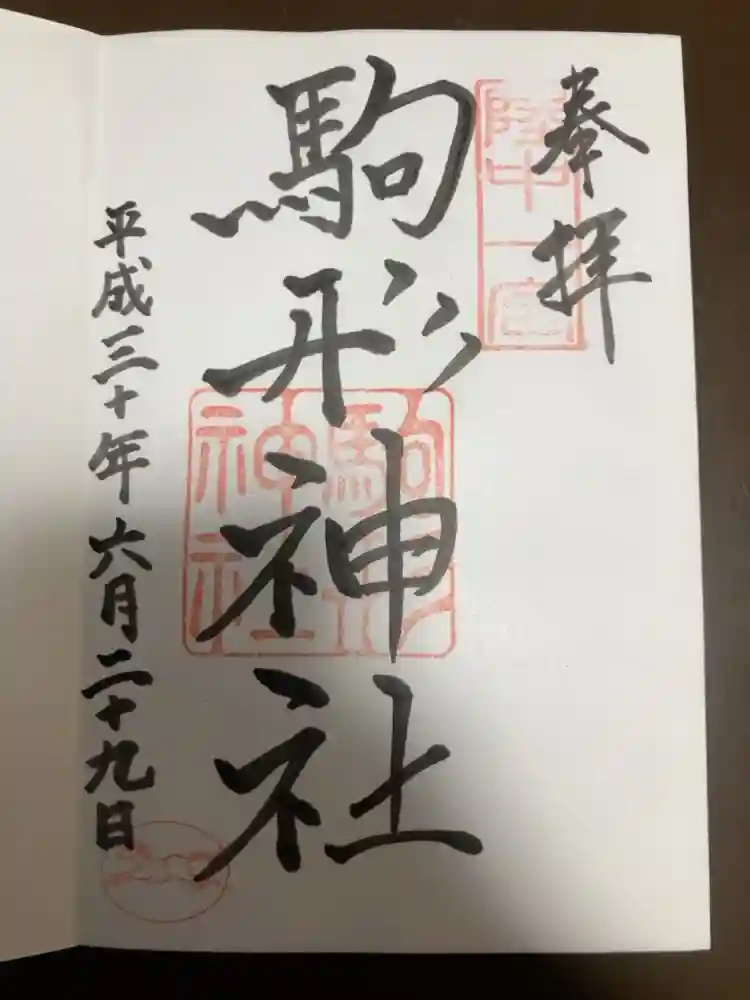 奉拝
陸中一宮
駒形神社
駒形神社
平成三十年六月二十九日